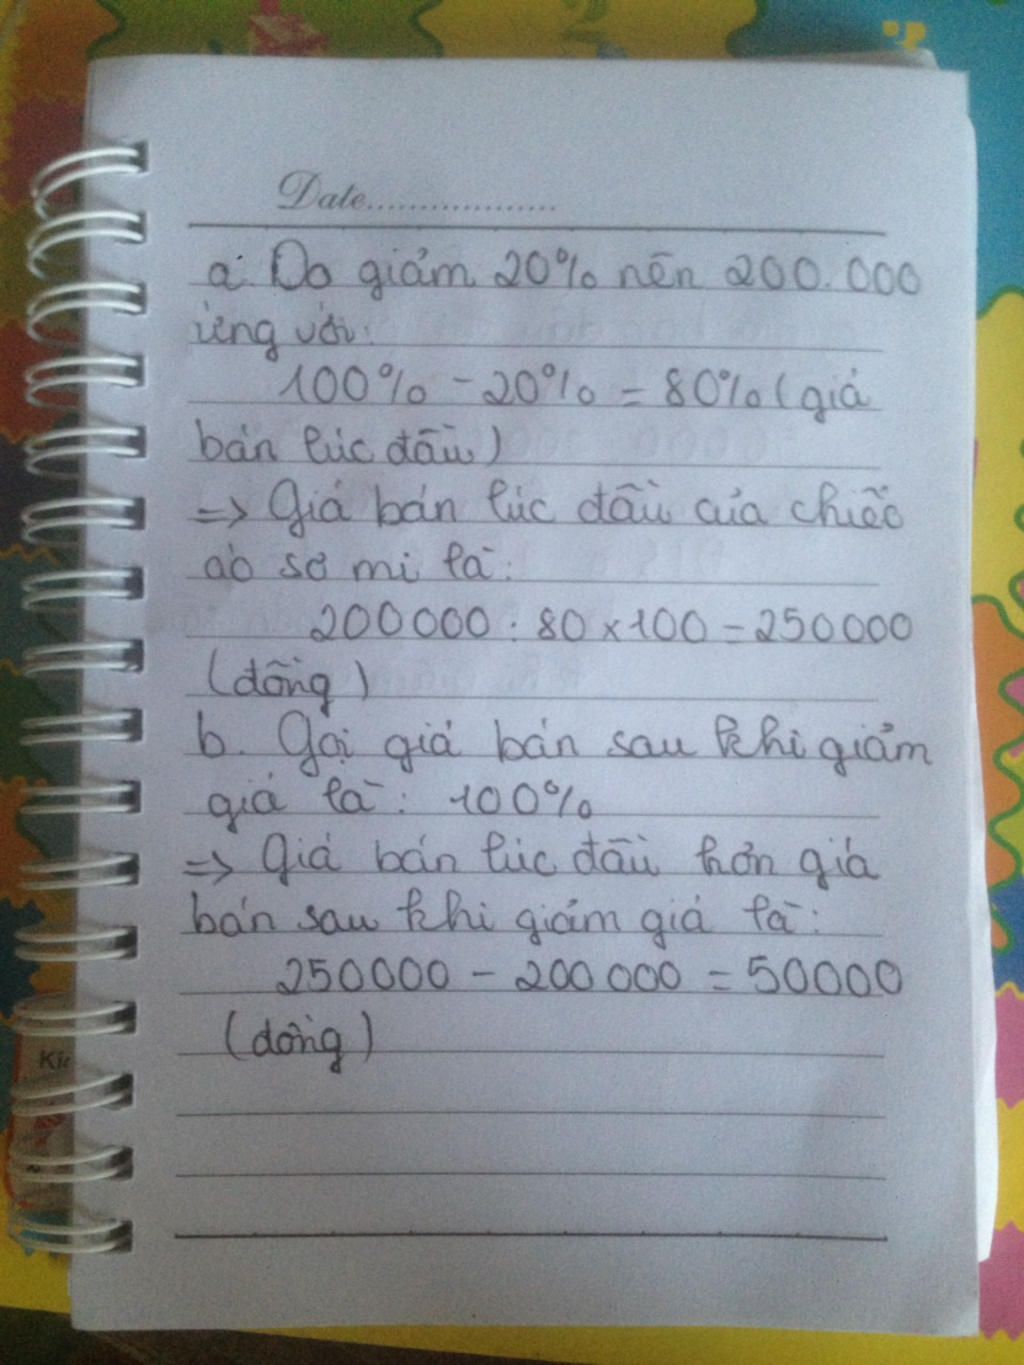 Date..................
a. Do giảm 20% nên 200.000
ứng với:
100% - 20% = 80% (giá
bán lúc đầu)
=> Giá bán lúc đầu của chiếc
áo sơ mi là:
200000 : 80 x 100 = 250000
(đồng)
b. Gọi giá bán sau khi giảm
giá là: 100%
=> Giá bán lúc đầu hơn giá
bán sau khi giảm giá là:
250000 - 200000 = 50000
(đồng)